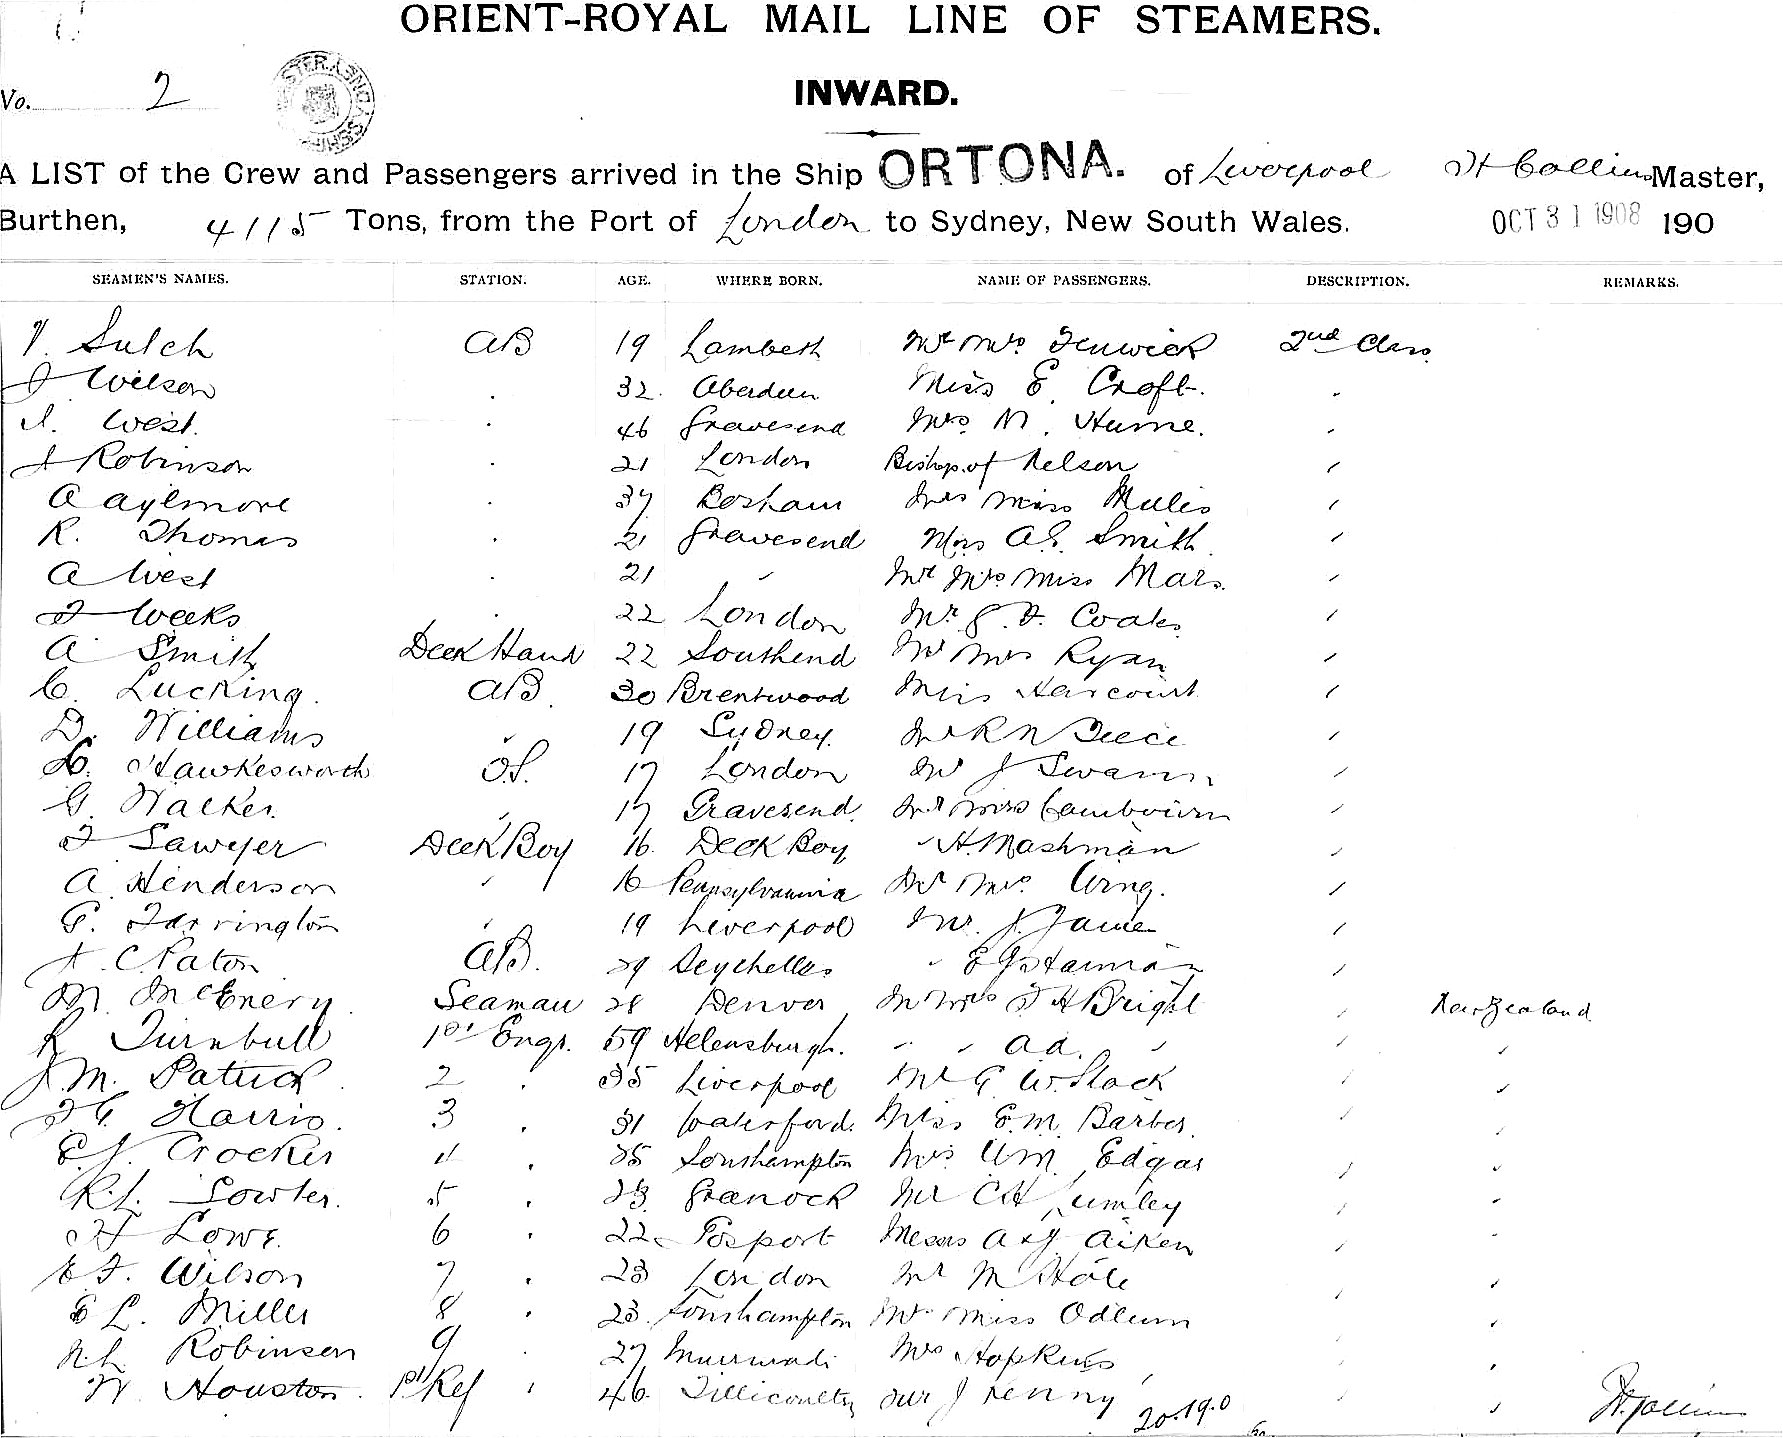 ORIENT-ROYAL MAIL LINE OF STEAMERS.
No. 2
INWARD.
A LIST of the Crew and Passengers arrived in the Ship ORTONA. of Liverpool Collins Master,
Burthen, 4115 Tons, from the Port of London to Sydney, New South Wales. OCT 31 1908 190
SEAMEN'S NAMES. STATION. AGE. WHERE BORN. NAME OF PASSENGERS. DESCRIPTION. REMARKS.
Sulch AB 19 Lambeth Mr Mrs Fenwick 2nd Class
Wilson 32. Aberdeen Miss E. Croft.
West. 46 Gravesend Mrs M. Hume.
J Robinson 21 London Bishop of Nelson
A Aylmore 37 Bosham Mrs Miss Mules
R. Thomas 21 Gravesend A. Smith
A West 21 " Mr Mrs Miss Mars.
Weeks 22 London Mr F. Coates
A Smith Deck Hand 22 Southend Mr Mrs Ryan
C. Lucking. AB. 30 Brentwood Miss Harcourt
D. Williams " 19 Sydney. Mr R N
Hawkesworth O.S. 17 London Mr J Swann
G. Walker. " 17 Gravesend. Mr Mrs Cambourn
Sawyer Deck Boy 16. Deck Boy " H. Mashman
A. Henderson " 16 Pennsylvania Mr Mrs Wing.
Farrington " 19 Liverpool Mr. J.
C. Paton AB. 29 Seychelles "
M. McEnery Seaman 28 Denver Mr Mrs F H Bright New Zealand
R Turnbull 1st Engr. 59 Helensburgh. " " a.d. "
J. M. Patrick 2 " 35 Liverpool Mr G W. Slack
Harris. 3 " 31 Waterford. Miss E. M. Barber.
E. J. Crocker 4 " 25 Southampton Edgar
R. L. Sowter. 5 " 23 Granock Mr C H Lumley
H Lowe. 6 " 22 Gosport Messrs A & J Aiken
F. Wilson 7 " 23 London Mr M Hole
E L. Miller 8 " 23. Southampton Mr Miss Odlum
Robinson 9 27 Mrs Hopkins
W. Houston. 1st Ref " 46 Tillicoultry J Kenny
20.19.0